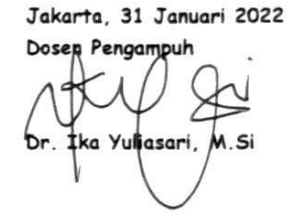 Jakarta, 31 Januari 2022
Dosen Pengampuh
Dr. Ika Yuliasari, M.Si